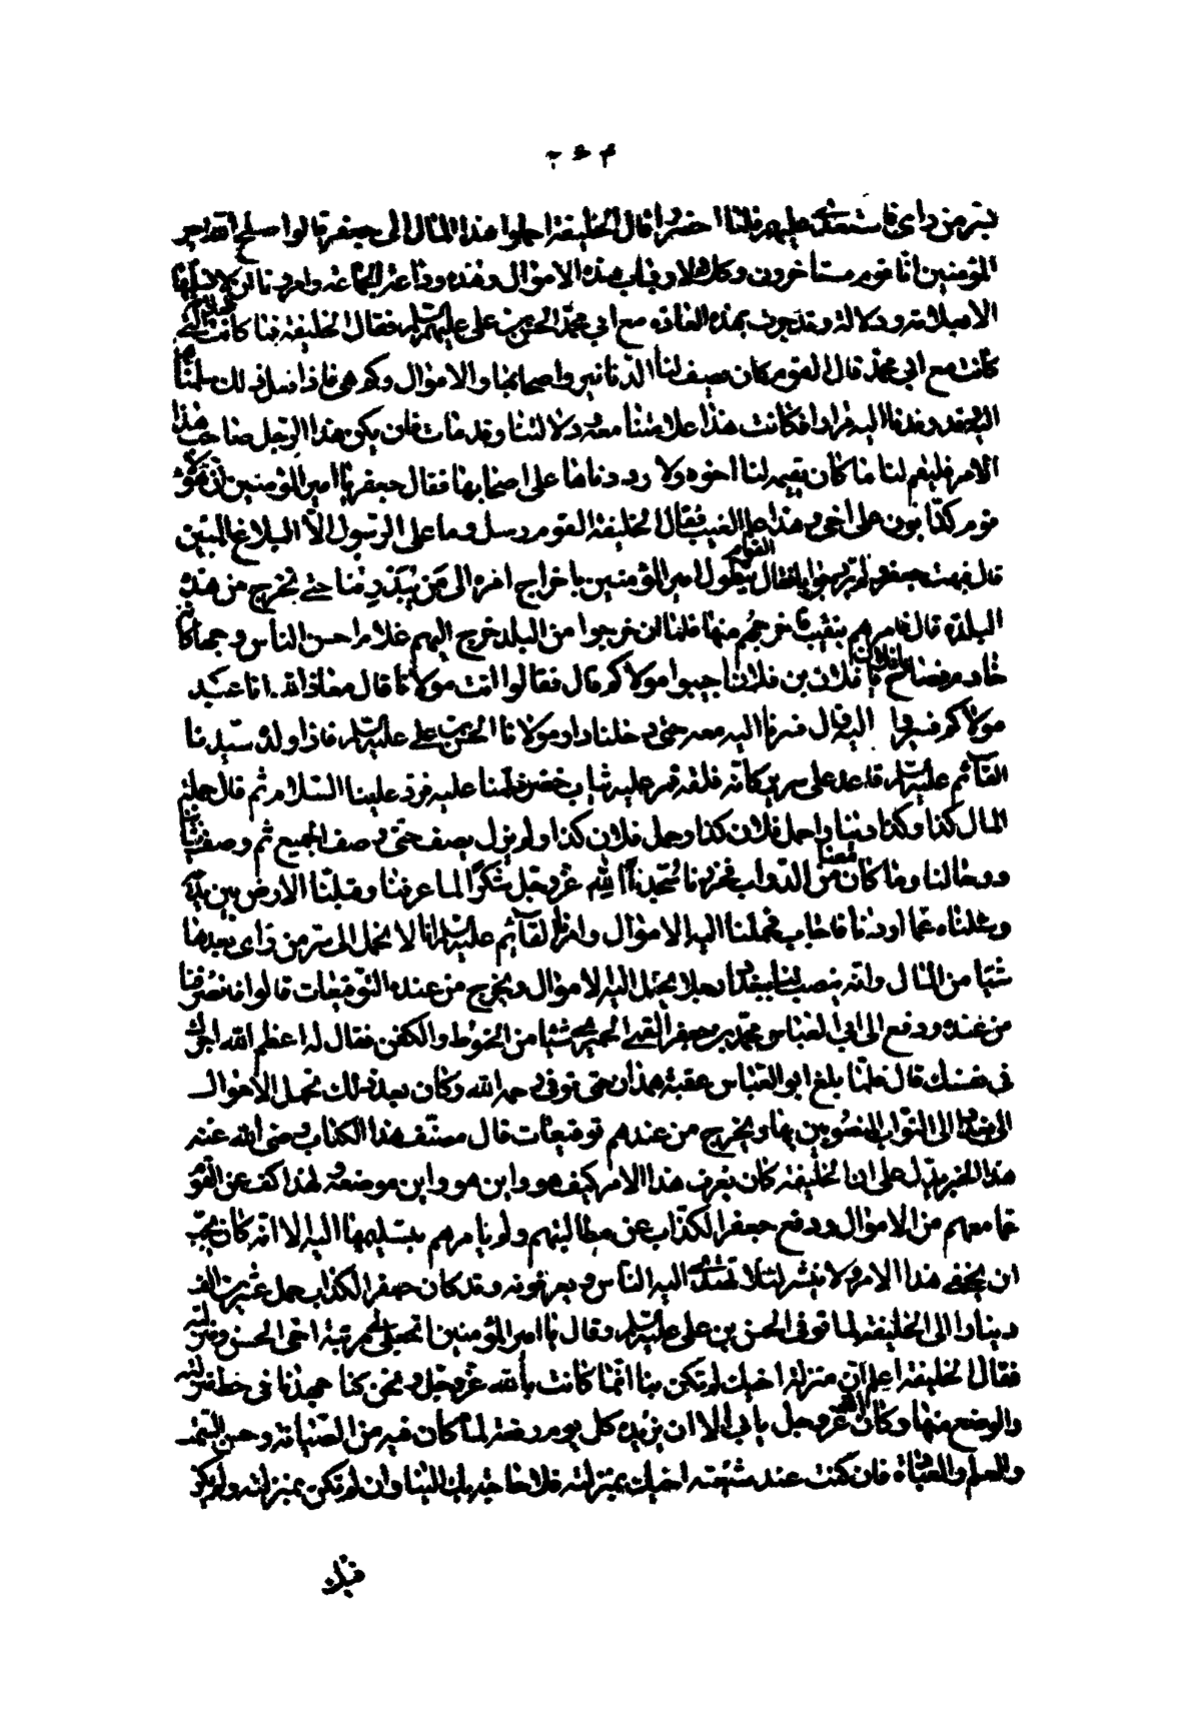 بسر من رای فاستعدی علیهم فلما احضروا قال الخلیفة احملوا هذا المال الی جعفر قالوا اصلح الله امیر
المؤمنین انا قوم مستأجرون وكلاء لارباب هذه الاموال وهذه وداعة لجماعة وامرونا ان لا نسلمها
الا بعلامة ودلالة وقد جرت بهذه العادة مع ابی محمد الحسن بن علی علیهما السلم فقال الخلیفة فما كانت العلامة التی
كانت مع ابی محمد قال القوم كان یصف لنا الدنانیر واصحابها والاموال وكم هی فاذا فعل ذلك سلمناها
الیه وقد وفدنا الیه مرارا فكانت هذه علامتنا معه ودلالتنا وقد مات فان یكن هذا الرجل صاحب هذا
الامر فلیقم لنا ما كان یقیمه لنا اخوه والا رددناها علی اصحابها فقال جعفر یا امیر المؤمنین ان هؤلاء
قوم كذابون علی اخی وهذا علم الغیب فقال الخلیفة القوم رسل وما علی الرسول الا البلاغ المبین
قال فبهت جعفر ولم یرد جوابا فقال القوم یتطول امیر المؤمنین باخراج امره الی من یبذرقنا حتی نخرج من هذه
البلدة قال فامر لهم بنقیب فاخرجهم منها فلما ان خرجوا من البلد خرج الیهم غلام احسن الناس وجها كانه
خادم فصاح یا فلان بن فلان یا فلان بن فلان اجیبوا مولاكم قال فقالوا انت مولانا قال معاذ الله انا عبد
مولاكم فسیروا الیه قال فسرنا الیه معه حتی دخلنا دار مولانا الحسن بن علی علیه السلم فاذا ولده سیدنا
القآئم علیه السلم قاعد علی سریر كانه فلقة قمر علیه ثیاب خضر فسلمنا علیه فرد علینا السلام ثم قال جملة
المال كذا وكذا دینارا حمل فلان كذا وحمل فلان كذا ولم یزل یصف حتی وصف الجمیع ثم وصف ثیابنا
ورحالنا وما كان معنا من الدواب فخررنا سجدا لله عز وجل شكرا لما عرفنا وقبلنا الارض بین یدیه
وسئلناه عما اردنا فاجاب فحملنا الیه الاموال وامرنا القآئم علیه السلم ان لا نحمل الی سر من رای بعدها
شیئا من المال وانه ینصب لنا ببغداد رجلا یحمل الیه الاموال ویخرج من عنده التوقیعات قالوا فانصرفنا
من عنده ودفع الی ابی العباس محمد بن جعفر القمی الحمیری شیئا من الحنوط والكفن فقال له اعظم الله اجرك
فی نفسك قال فلما بلغ ابو العباس عقبة همدان حتی توفی رحمه الله وكان بعد ذلك تحمل الاموال
الی بغداد الی النواب المنصوبین بها ویخرج من عندهم توقیعات قال مصنف هذا الكتاب رضی الله عنه
هذا الخبر یدل علی ان الخلیفة كان یعرف هذا الامر كیف هو واین هو واین موضعه لهذا كف عن القوم
عما معهم من الاموال ودفع جعفر الكذاب عن مطالبتهم ولم یامرهم بتسلیمها الیه الا انه كان یحب
ان یخفی هذا الامر ولا ینشر لئلا تهتدی الیه الناس ویعرفونه وقد كان جعفر الكذاب حمل عشرین الف
دینار الی الخلیفة لما توفی الحسن بن علی علیه السلم وقال یا امیر المؤمنین اتجعل لی مرتبة اخی الحسن ومنزلته
فقال الخلیفة اعلم ان منزلة اخیك لم تكن بنا انما كانت بالله عز وجل ونحن كنا نجهد نا فی حط منزلته
والوضع منها وكان الله عز وجل یابی الا ان یزیده كل یوم رفعة لما كان فیه من الصیانة وحسن السمت
والعلم والعبادة فان كنت عند شیعة اخیك بمنزلته فلا حاجة بك الینا وان لم تكن بمنزلته ولم یكن
فیك